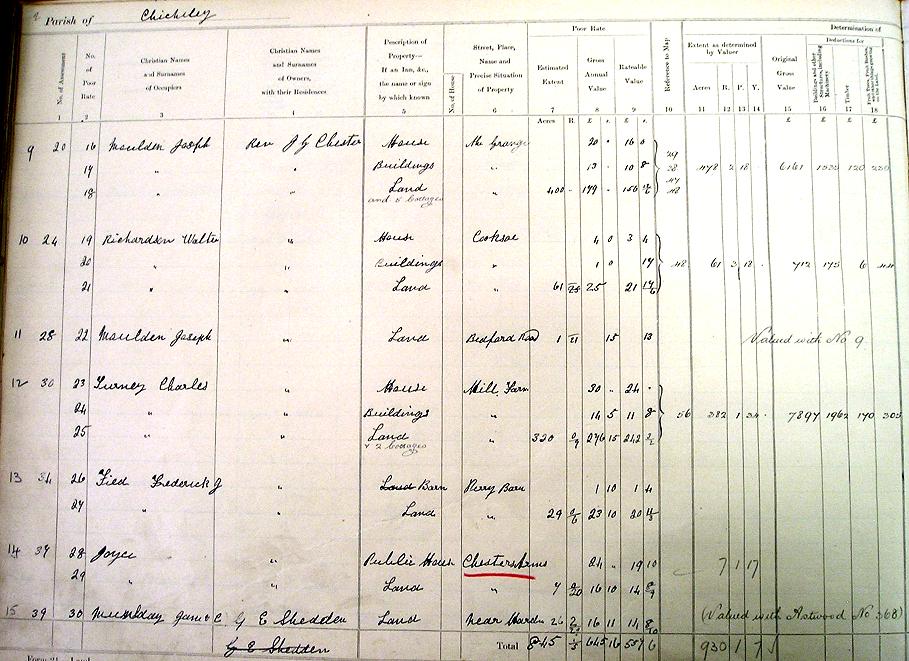 Parish of Chicheley
Poor Rate
Determination of
No. of Assessment
No. of Poor Rate
Christian Names and Surnames of Occupiers
Christian Names and Surnames of Owners, with their Residences
Description of Property— If an Inn, &c., the name or sign by which known
No. of House
Street, Place, Name and Precise Situation of Property
Estimated Extent
Gross Annual Value
Rateable Value
Reference to Map
Extent as determined by Valuer
Acres R. P. Y.
Original Gross Value
Deductions for
Buildings and other Structures, including Machinery
Timber
1 2 3 4 5 6 7 8 9 10 11 12 13 14 15 16 17 18
Acres R. £ s. £ s. £ £ £
9 20 16 Moulden Joseph Rev J G Chester House The Grange 20 - 16 0
17 " " Buildings " 13 - 10 8
18 " " Land " 400 - 179 - 156
and 5 Cottages
478 2 18 - 6161 120
10 24 19 Richardson Walter " House Cooksoe 4 0 3 4
20 " " Buildings " 1 0 17
48 61 3 18 - 712 175 6 44
21 " " Land " 61 25 21
11 28 22 Moulden Joseph " Land Bedford Road 1 15 13 Valued with No 9
12 30 23 Turney Charles " House Mill Farm 30 - 24 -
24 " " Buildings " 14 5 11 8
56 382 1 34 - 7897 1962 170 305
25 " " Land " 320 276 15 242
& 2 Cottages
13 34 26 Field Frederick J " Land Barn Perry Barn 1 10 1 4
27 " " Land " 29 23 10 20
14 37 28 Joyce " Public House Chesters Arms 24 - 19 10 7 1 17
29 " " Land " 7 16 10 14
15 39 30 Mumbday James C. G E Shedden Land Near Hardm 26 16 11 14 (Valued with Astwood No 368)
G E Shedden Total 845 645 16 557 6 930 1 7